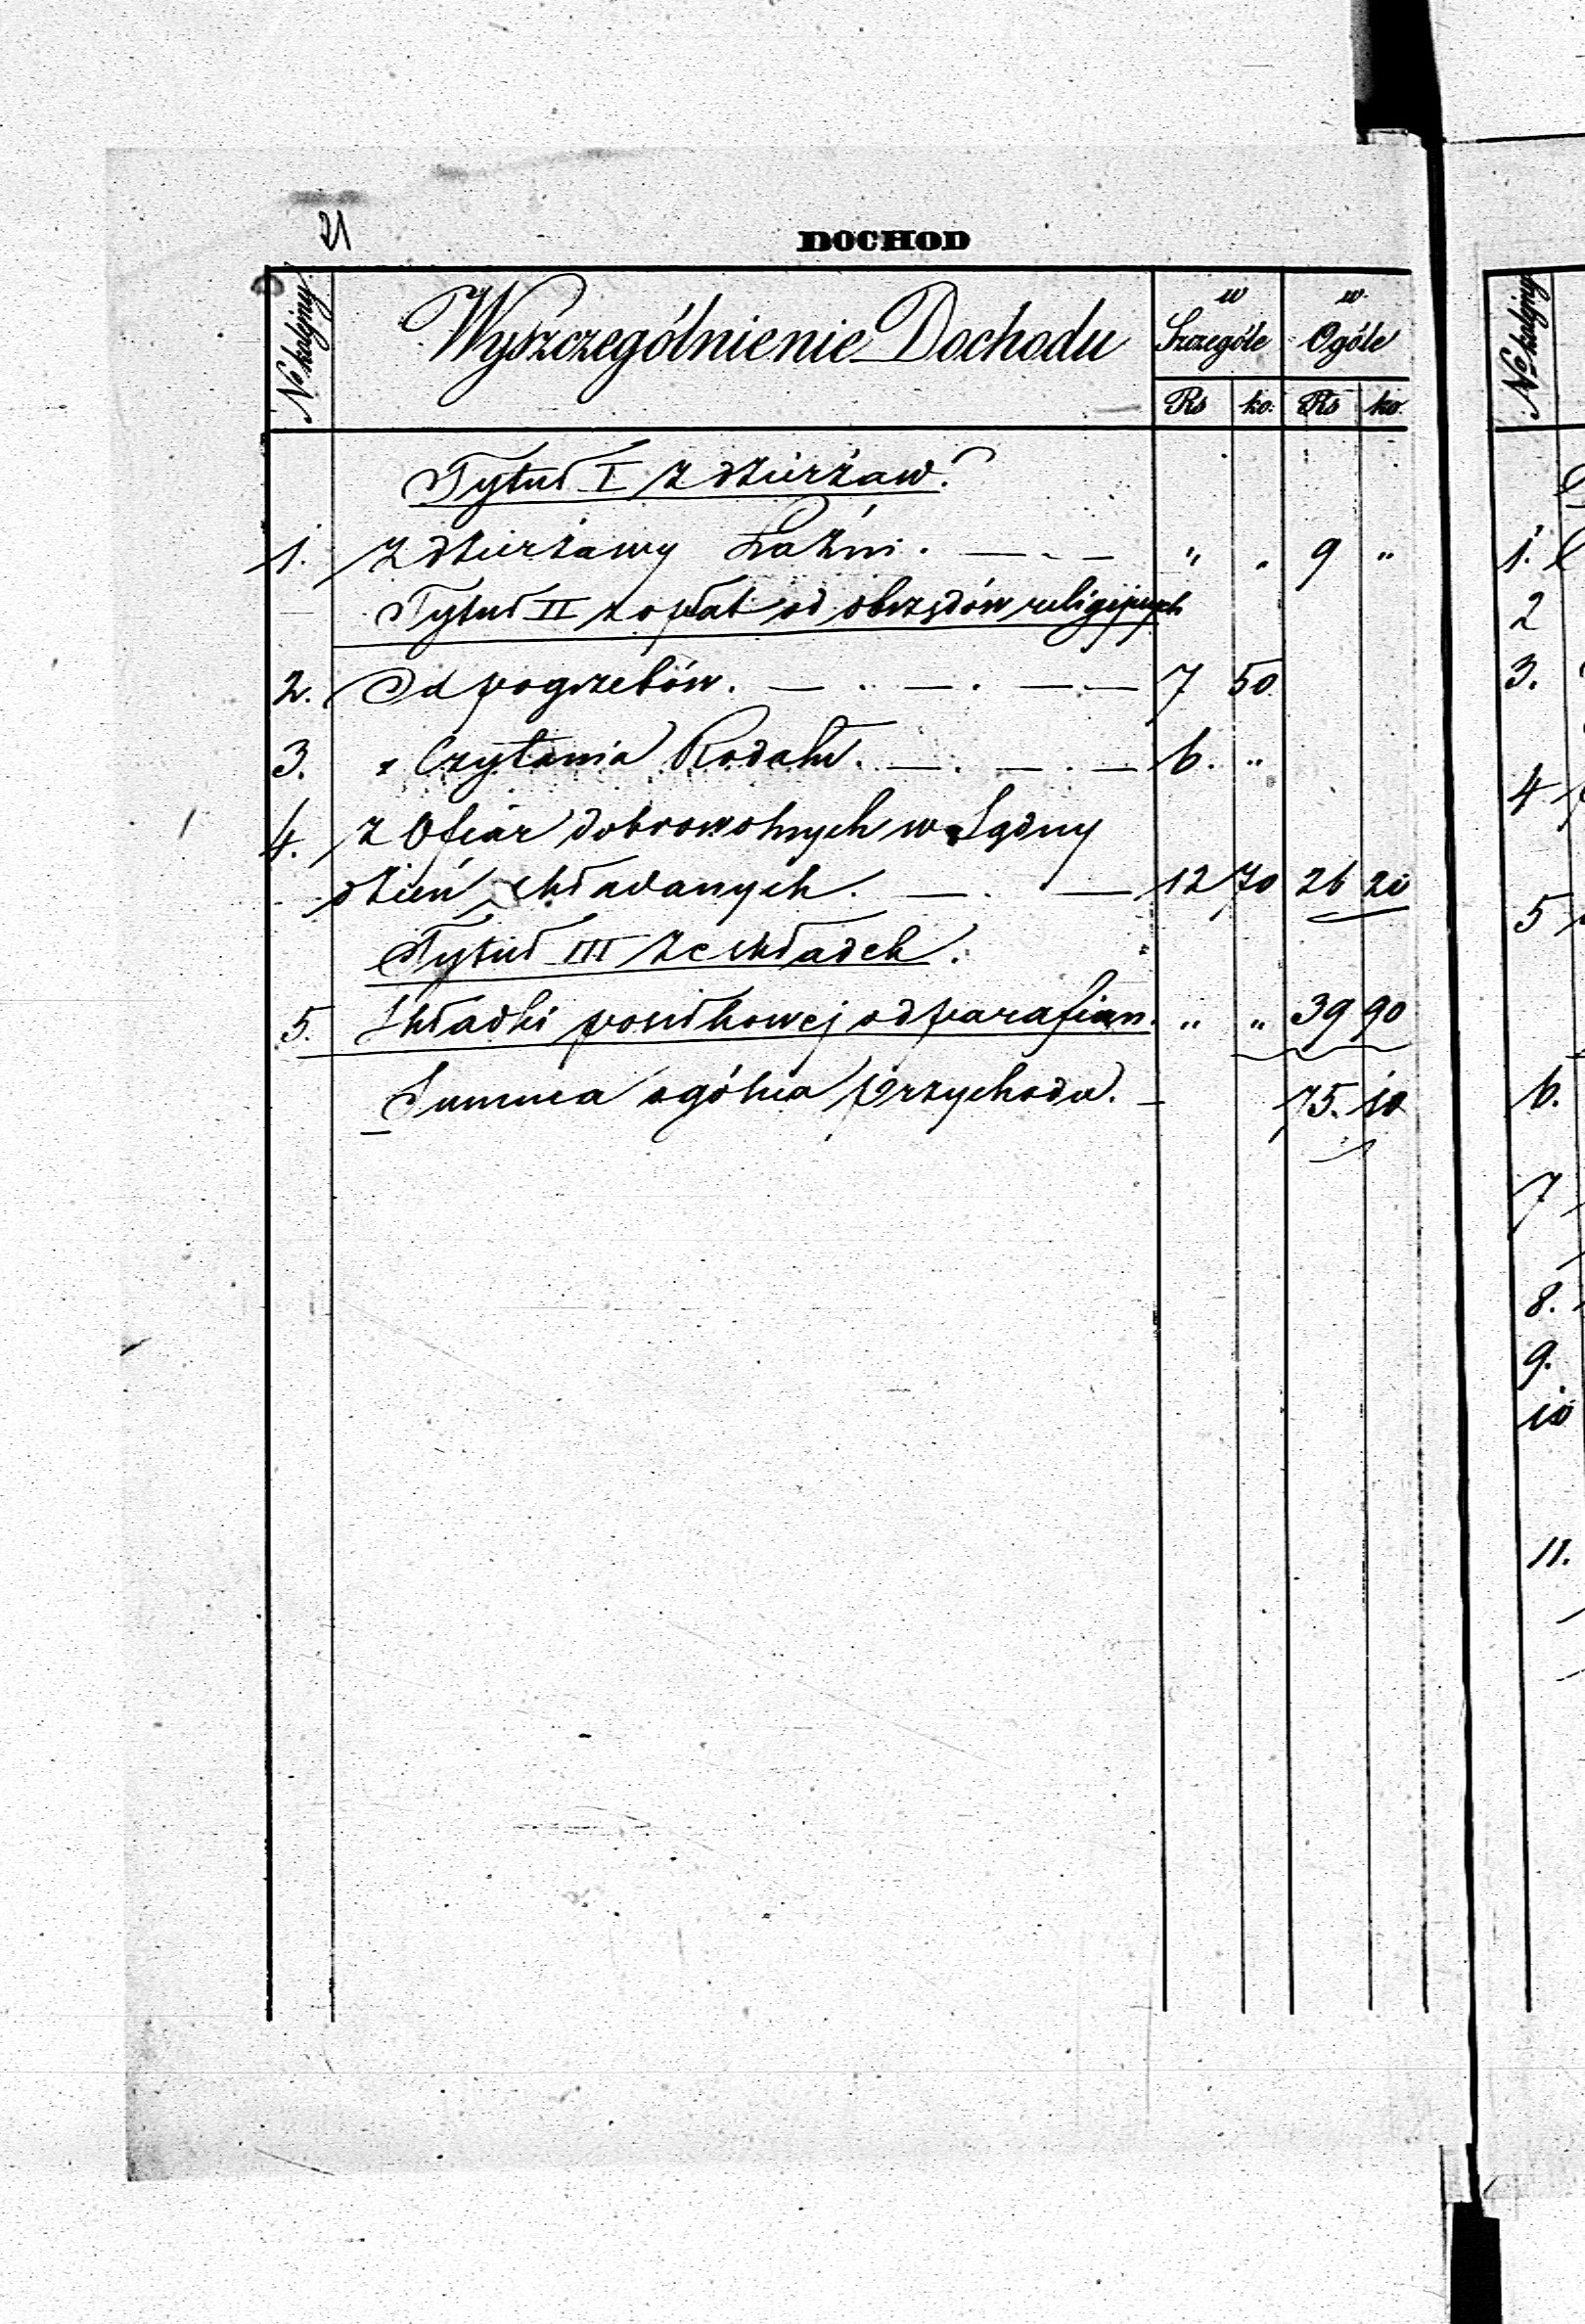 21
DOCHOD
No kolejny
Wyszczególnienie Dochodu
w Szczególe
w Ogóle
Rs ko: Rs ko.
Tytuł I Z dzierżaw.
1. Z dzierżawy Łaźni. — - — " " 9 "
Tytuł II z opłat od obrzędów religijnych
2. Od pogrzebów. — . — . — — 7 50
3. " Czytania Rodału. — . — . — 6. "
4. Z Ofiar dobrowolnych w Sądny
dzień składanych. — . — 12 70 26 20
Tytuł III ze składek.
5. Składki posiłkowej od parafian. " " 39 90
Summa ogólna przychodu. — 75. 10
No kolejny
1.
2
3.
4
5
6.
7
8.
9.
10
11.